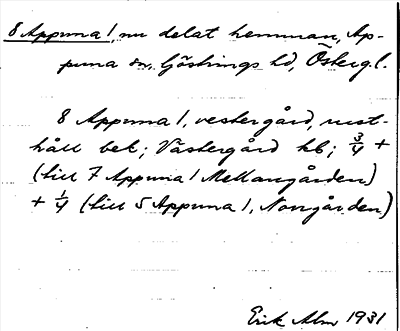 8 Appuna 1, nu delat hemman, Ap-
puna sn, Göstrings hd, Östergl.
8 Appuna 1, vestergård, rust-
håll bek; Västergård kb; 3/4 +
(till 7 Appuna 1 Mellangården)
+ 1/4 (till 5 Appuna 1, Norrgården)
Erik Alm 1931